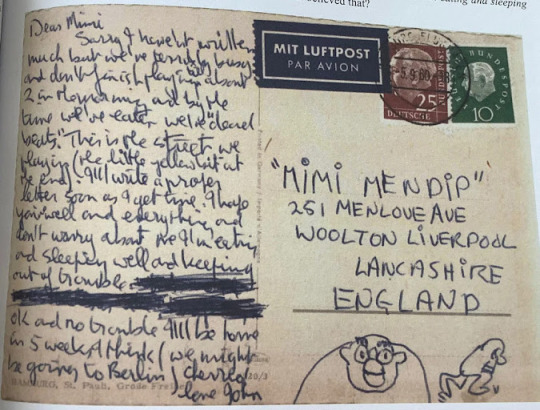 believed that?
eating and sleeping
Dear Mimi
Sorry I haven't written
much but we've terribly busy
and don't finish playing till about
2 in the morning and by the
time we've eaten we're "dead
beats". This is the street we
play in (the little yellow bit at
the end). I'll write a proper
letter soon as I get time. I hope
you're well and everything and
don't worry about me I'm eating
and sleeping well and keeping
out of trouble
OK and no trouble I'll be home
in 5 weeks I think (we might
be going to Berlin) cheerio
love John
HAMBURG, St. Pauli, Große
MIT LUFTPOST
PAR AVION
-5.9.60
25
DEUTSCHE
BUNDESPOST
10
"MIMI MENDIP"
251 MENLOVE AVE
WOOLTON LIVERPOOL
LANCASHIRE
ENGLAND